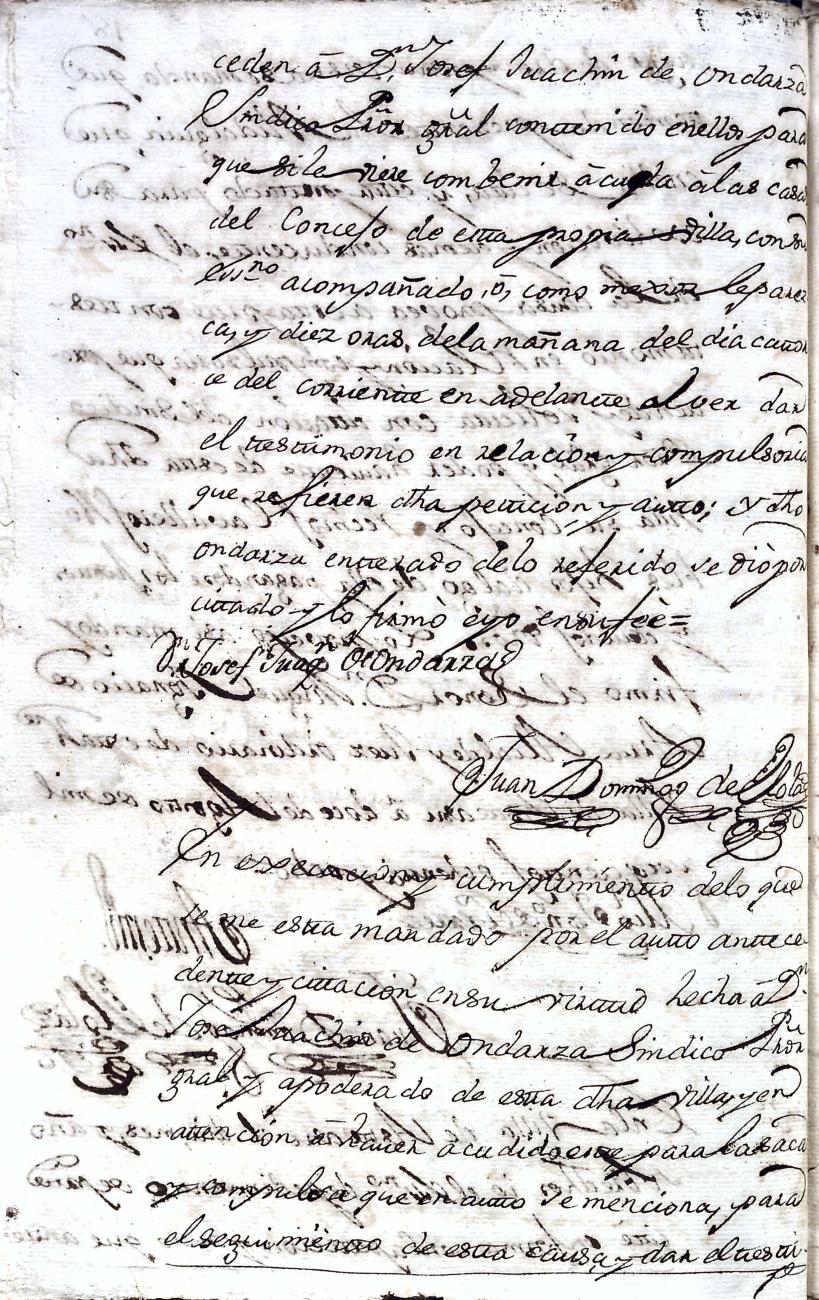 ceden â Dn, Josef Juachin de, ondarza
Sindico Pror gral conttenido enellos para
que si le viere combenir âcuda âlas casas
del Concejo de estta propia villa, con su
essno acompañado, ô, como mexor le parez
ca, y diez oras, dela mañana del dia cattor
ce del corriente en adelantte alver dar
el ttesttimonio en relacion y compulsoria
que refieren dha peticion y autto; y dho
ondarza entterado delo referido se diò por
cittado y lo firmò èyo ensu feè=
Dn Josef Juaqn de Ondarza
Juan Domingo de
En execucion y cumplimientto delo que
se me estta mandado por el autto antece
dentte y cittacion ensu virttud hecha â Dn
Josef Juachin de Ondarza Sindico Pror
gral y apoderado de estta dha villa, y en
attencion â haver acudido este para la saca
y compulsa que en autto se menciona, y para
el seguimientto de estta causa y dar el testti-